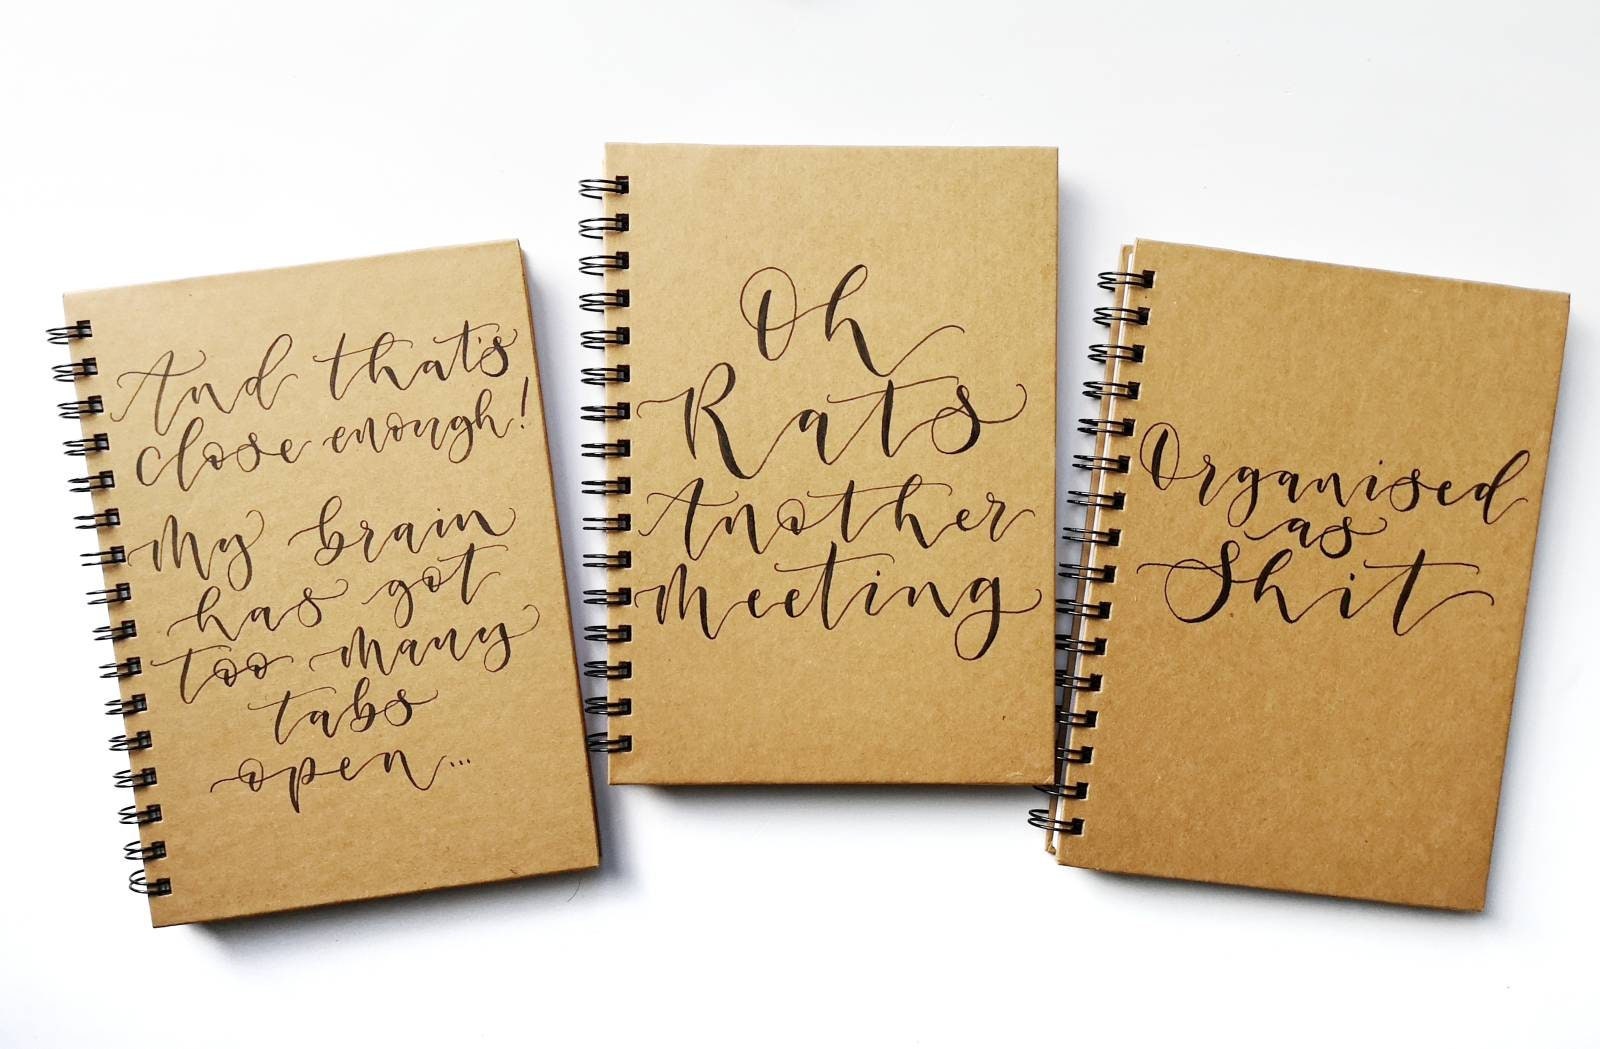 And that's
close enough!
My brain
has got
too many
tabs
open...
Oh
Rats
Another
Meeting
Organised
as
Shit